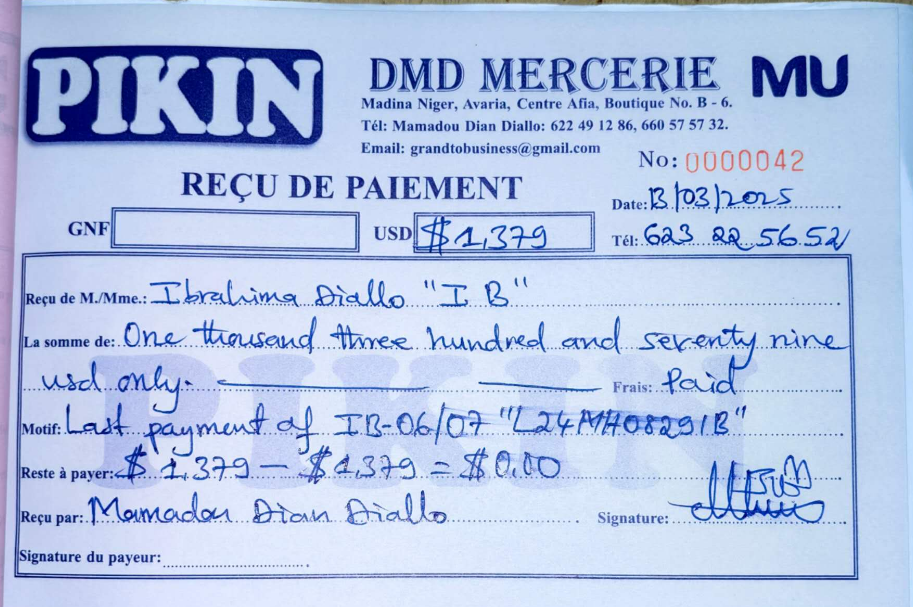 PIKIN
DMD MERCERIE
MU
Madina Niger, Avaria, Centre Afia, Boutique No. B - 6.
Tél: Mamadou Dian Diallo: 622 49 12 86, 660 57 57 32.
Email: grandtobusiness@gmail.com
No: 0000042
REÇU DE PAIEMENT
Date: 13/03/2025
GNF
USD $ 1,379
Tél: 623 22 56 52
Reçu de M./Mme.: Ibrahima Diallo "I B"
La somme de: One thousand three hundred and seventy nine
usd only. Frais: Paid
Motif: Last payment of IB-06/07 "L24MH0829IB"
Reste à payer: $ 1,379 — $1,379 = $0,00
Reçu par: Mamadou Dian Diallo
Signature:
Signature du payeur:
PIKIN